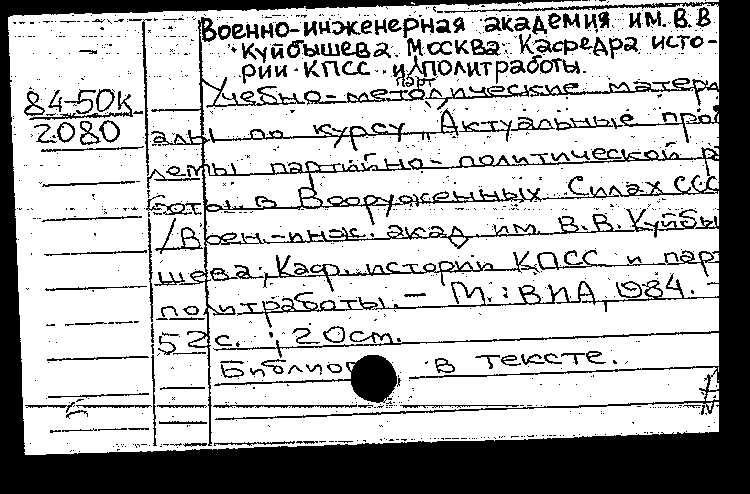 Военно-инженерная академия им. В.В
Куйбышева. Москва. Кафедра исто-
рии КПСС и парт политработы.
84-50к
2080
Учебно-методические матери
алы по курсу „Актуальные проб
лемы партийно-политической р
боты в Вооруженных Силах ССС
/Воен.-инж. акад им. В.В. Куйбы
шева; Каф. истории КПСС и пар
политработы. — М.: ВИА, 1984. —
52 с. ; 20 см.
Библиогр в тексте.